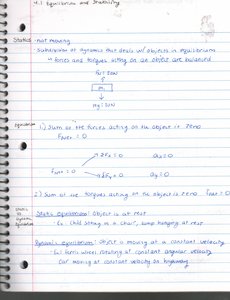 4.1 Equilibrium and Stability
Statics - not moving
- Subdivision of dynamics that deals w/ objects in equilibrium
↳ forces and torques acting on an object are balanced
FN = 20N
m
mg = 20N
Equilibrium 1.) Sum of the forces acting on the object is zero
FNET = 0
FNET = 0 → ΣFx = 0 ax = 0
→ ΣFy = 0 ay = 0
2.) Sum of the torques acting on the object is zero = 0
Static vs. Dynamic Equilibrium
Static Equilibrium: Object is at rest
Ex. Child sitting in a chair, lamp hanging at rest
Dynamic equilibrium: Object is moving at a constant velocity
Ex. ferris wheel rotating at constant angular velocity
Car moving at constant velocity on highway